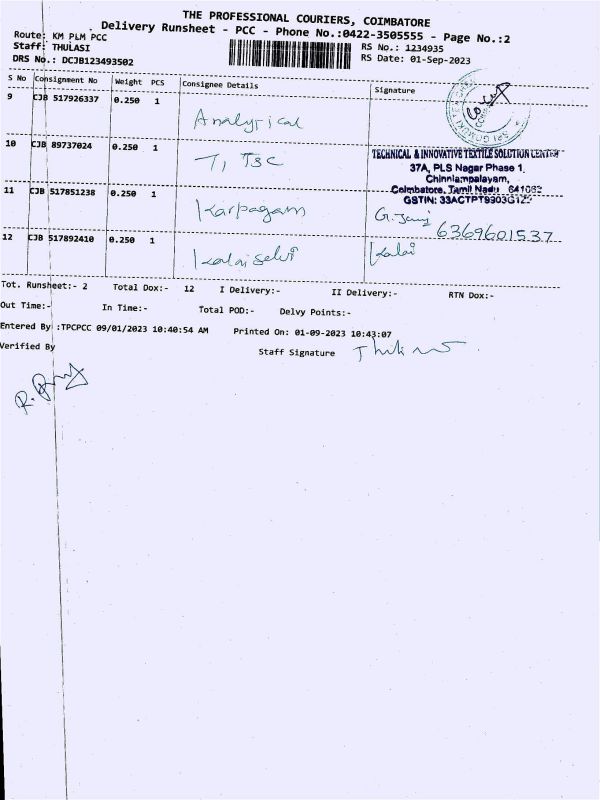 THE PROFESSIONAL COURIERS, COIMBATORE
Delivery Runsheet - PCC - Phone No.:0422-3505555 - Page No.:2
Route: KM PLM PCC
Staff: THULASI
RS No.: 1234935
DRS No.: DCJB123493502
RS Date: 01-Sep-2023
S No Consignment No Weight PCS Consignee Details Signature
9 CJB 517926337 0.250 1
Analytical
10 CJB 89737024 0.250 1
T, TSC
TECHNICAL & INNOVATIVE TEXTILE SOLUTION CENTER
37A, PLS Nagar Phase 1,
Chinniampalayam,
Coimbatore, Tamil Nadu 641062
11 CJB 517851238 0.250 1
Karpagam
6369601537
12 CJB 517892410 0.250 1
Kalaiselvi
Kalai
Tot. Runsheet:- 2 Total Dox:- 12 I Delivery:- II Delivery:- RTN Dox:-
Out Time:- In Time:- Total POD:- Delvy Points:-
Entered By :TPCPCC 09/01/2023 10:40:54 AM Printed On: 01-09-2023 10:43:07
Verified By
Staff Signature